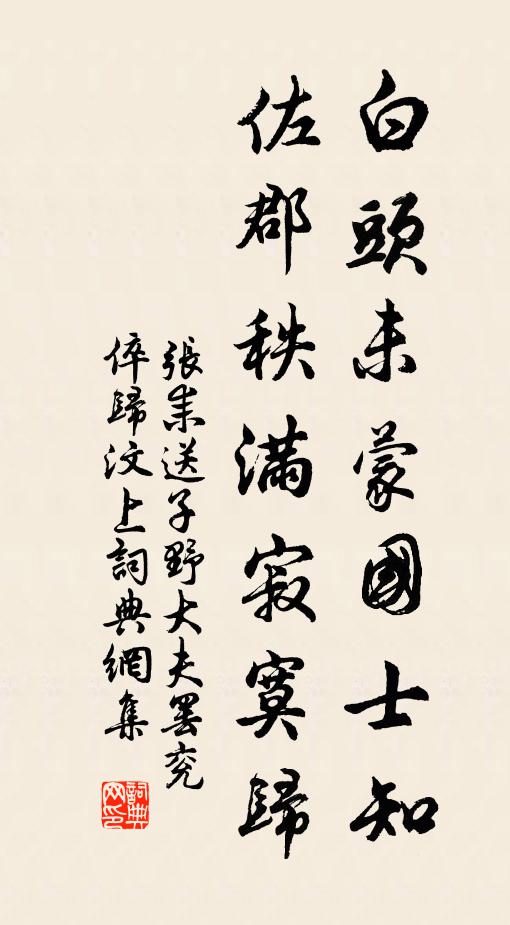 白頭未蒙國士知
佐郡秩滿寂寞歸
張耒送子野大夫罷兖
倅歸汶上詞典網集
詞典网印